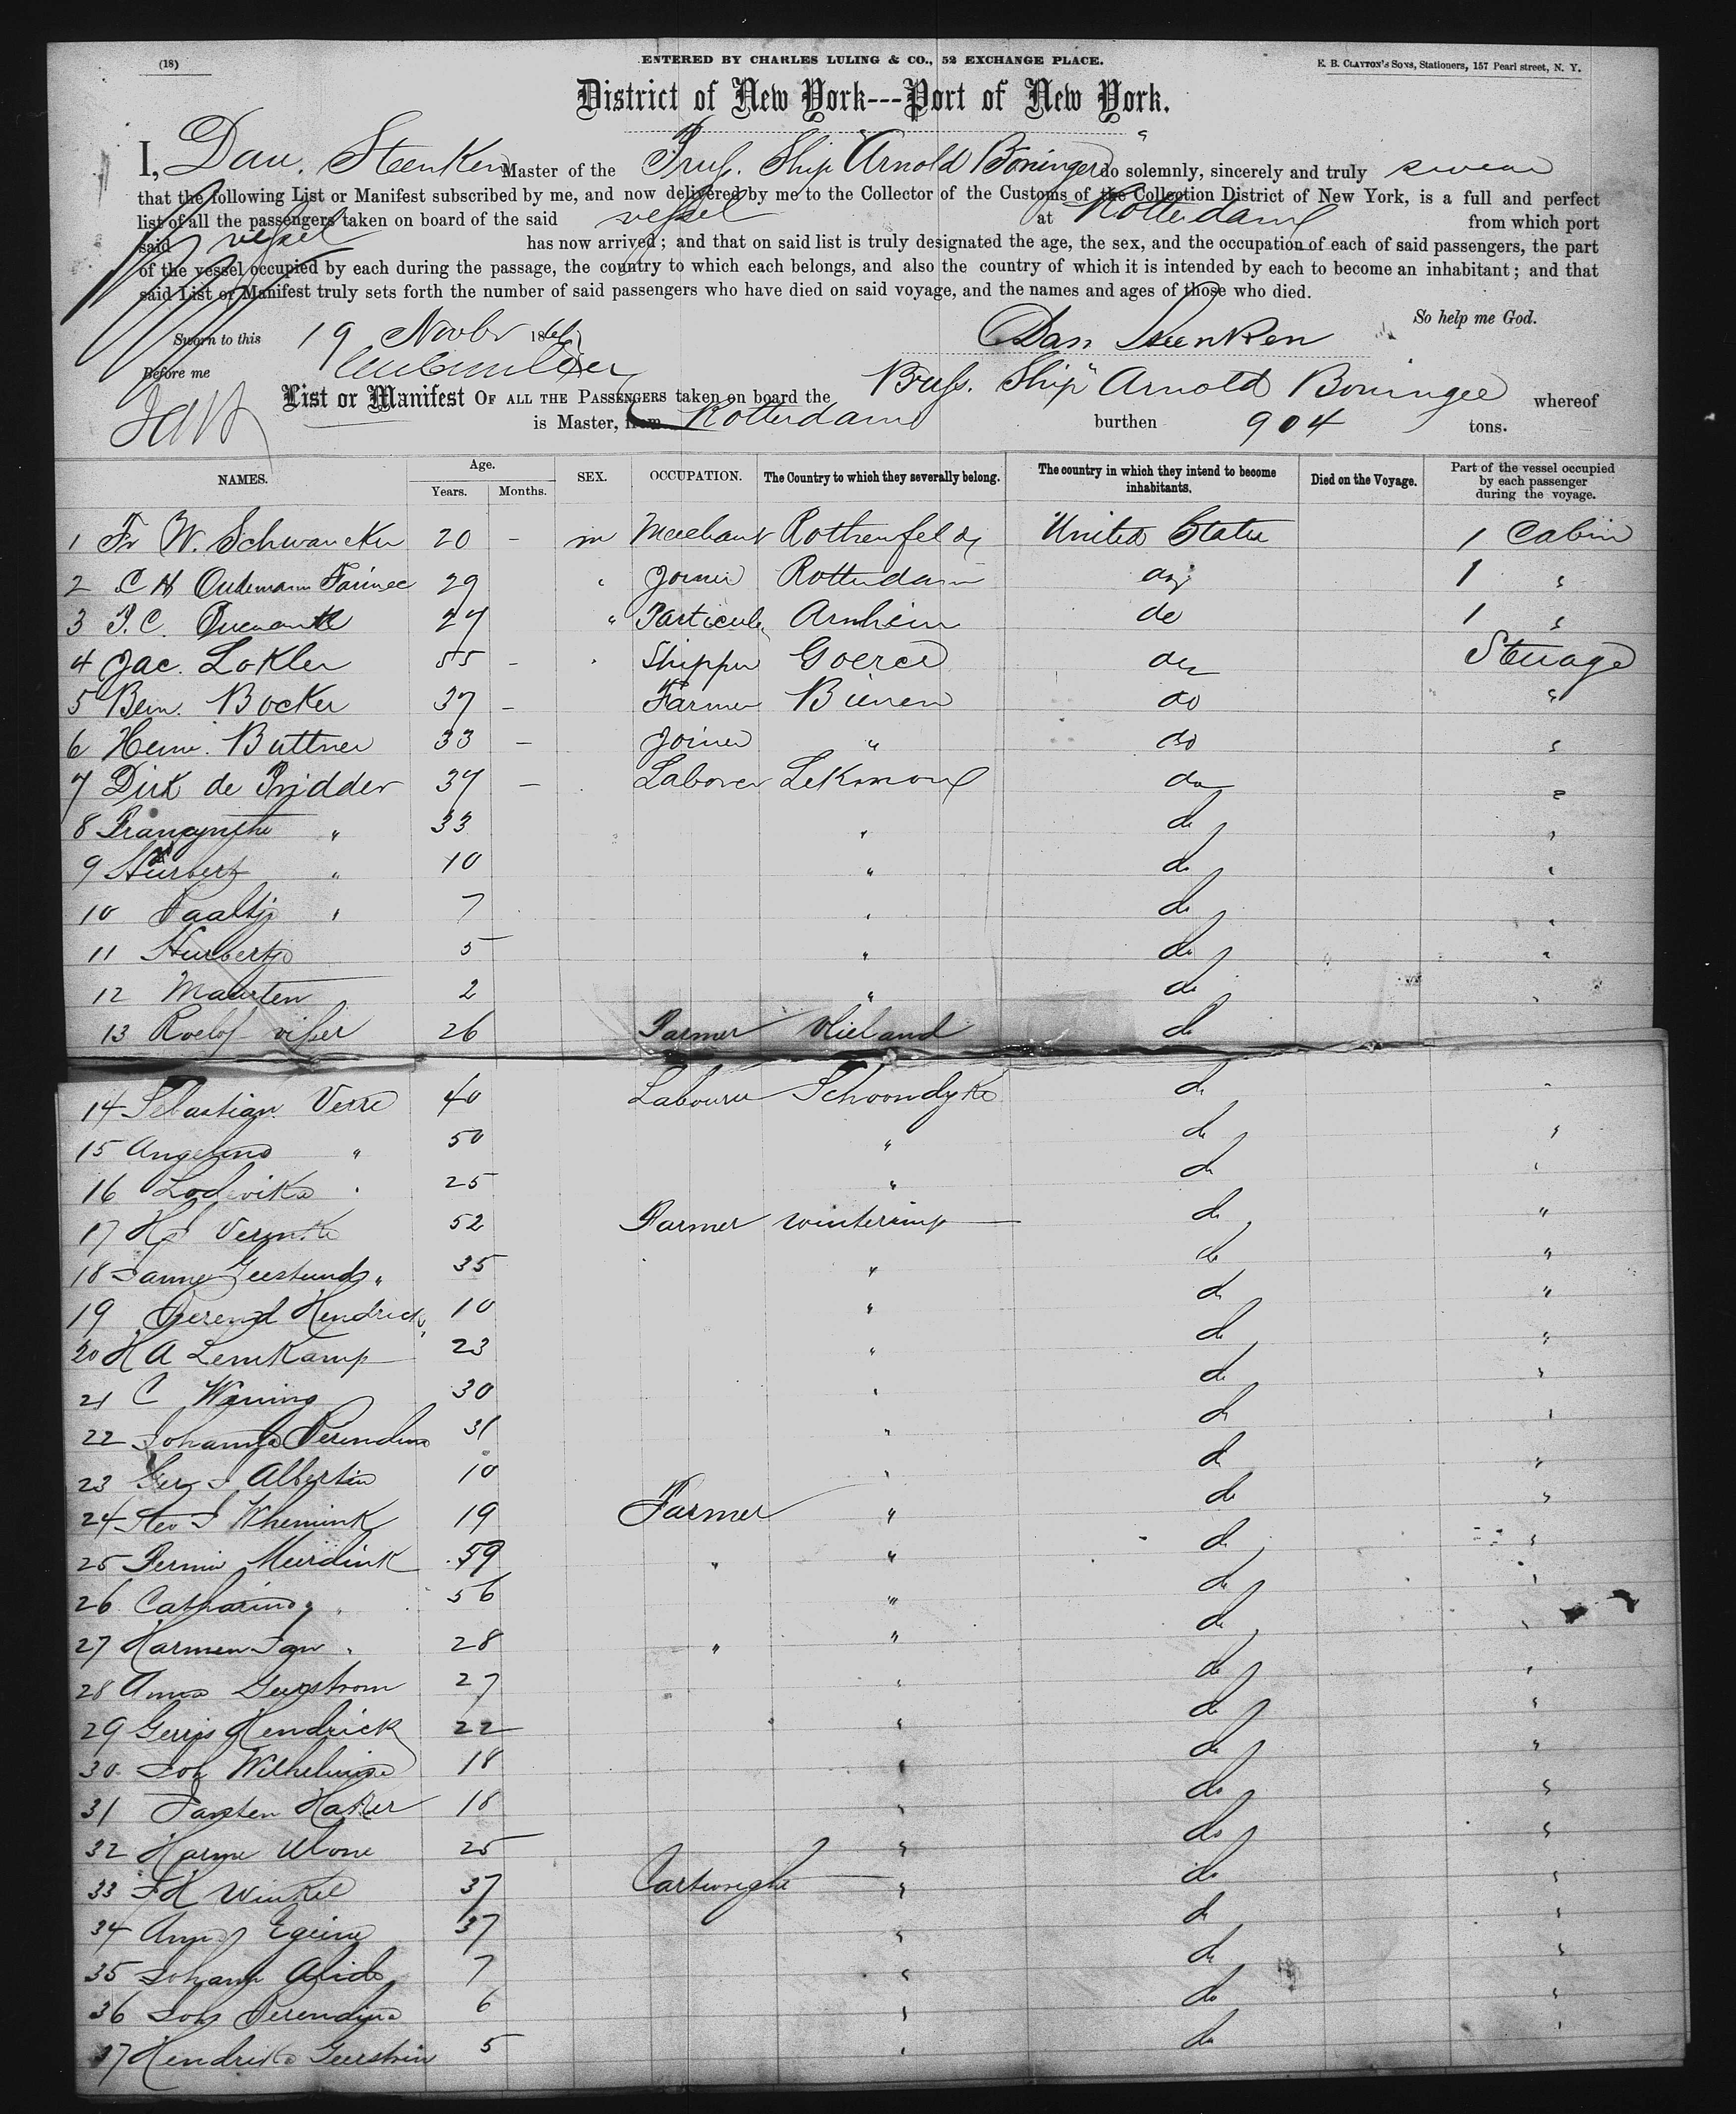 (18)
ENTERED BY CHARLES LULING & CO., 52 EXCHANGE PLACE.
E. B. CLAYTON'S SONS, Stationers, 157 Pearl street, N. Y.
District of New York---Port of New York.
I, Dan. Steenken Master of the Pruss. Ship Arnold Boninger do solemnly, sincerely and truly swear
that the following List or Manifest subscribed by me, and now delivered by me to the Collector of the Customs of the Collection District of New York, is a full and perfect
list of all the passengers taken on board of the said vessel at Rotterdam from which port
said vessel has now arrived; and that on said list is truly designated the age, the sex, and the occupation of each of said passengers, the part
of the vessel occupied by each during the passage, the country to which each belongs, and also the country of which it is intended by each to become an inhabitant; and that
said List or Manifest truly sets forth the number of said passengers who have died on said voyage, and the names and ages of those who died.
So help me God.
Sworn to this 19 Novbr 186
Dan Steenken
Before me
List or Manifest OF ALL THE PASSENGERS taken on board the Pruss. Ship "Arnold Boninger whereof
is Master, from Rotterdam burthen 904 tons.
NAMES. Age. Years. Months. SEX. OCCUPATION. The Country to which they severally belong. The country in which they intend to become inhabitants. Died on the Voyage. Part of the vessel occupied by each passenger during the voyage.
1 Fr W. Schwancker 20 - m Merchant Rothenfelde United States 1 Cabin
2 C H 29 " Joiner Rotterdam do 1 "
3 P. C. 27 " Particulr Arnheim do 1 "
4 Jac. Lokler 55 - " Shipper Goeree do Steerage
5 Bern. Bocker 37 - Farmer Bienen do "
6 Herm. Buttner 33 - Joiner " do "
7 Dirk de Pridder 37 - Laborer Lekmond do "
8 " 33 " do "
9 Huibert " 10 " do "
10 Paaltje " 7 " do "
11 Huibertje 5 " do "
12 Maarten 2 " do
13 Roelof visser 26 Farmer Vlieland do
14 Sebastian Verre 40 Labourer Schoondyke do "
15 Angelina " 50 " do "
16 Lodevika " 25 " do "
17 52 Farmer winterswyk do "
18 Janna Geertund " 35 " do "
19 Berend Hendrick " 10 " do "
20 H A Lemkamp 23 " do "
21 C Waning 30 " do "
22 Johanna Berendina 31 " do "
23 Ger J Albertin 10 " do "
24 19 Farmer " do "
25 Meerdink 59 " " do "
26 Catharina " 56 " do "
27 Harmen Jan " 28 " " do "
28 Anna Geerstrom 27 " do "
29 Gerrit Hendrick 22 " do "
30 Joh Wilhelmina 18 " do "
31 18 " do "
32 Harme 25 " do "
33 J H Winkel 37 Cartwright " do "
34 Anna 37 " do "
35 Johann Alida 7 " do "
36 Joh Berendina 6 " do "
37 Hendrika 5 " do "